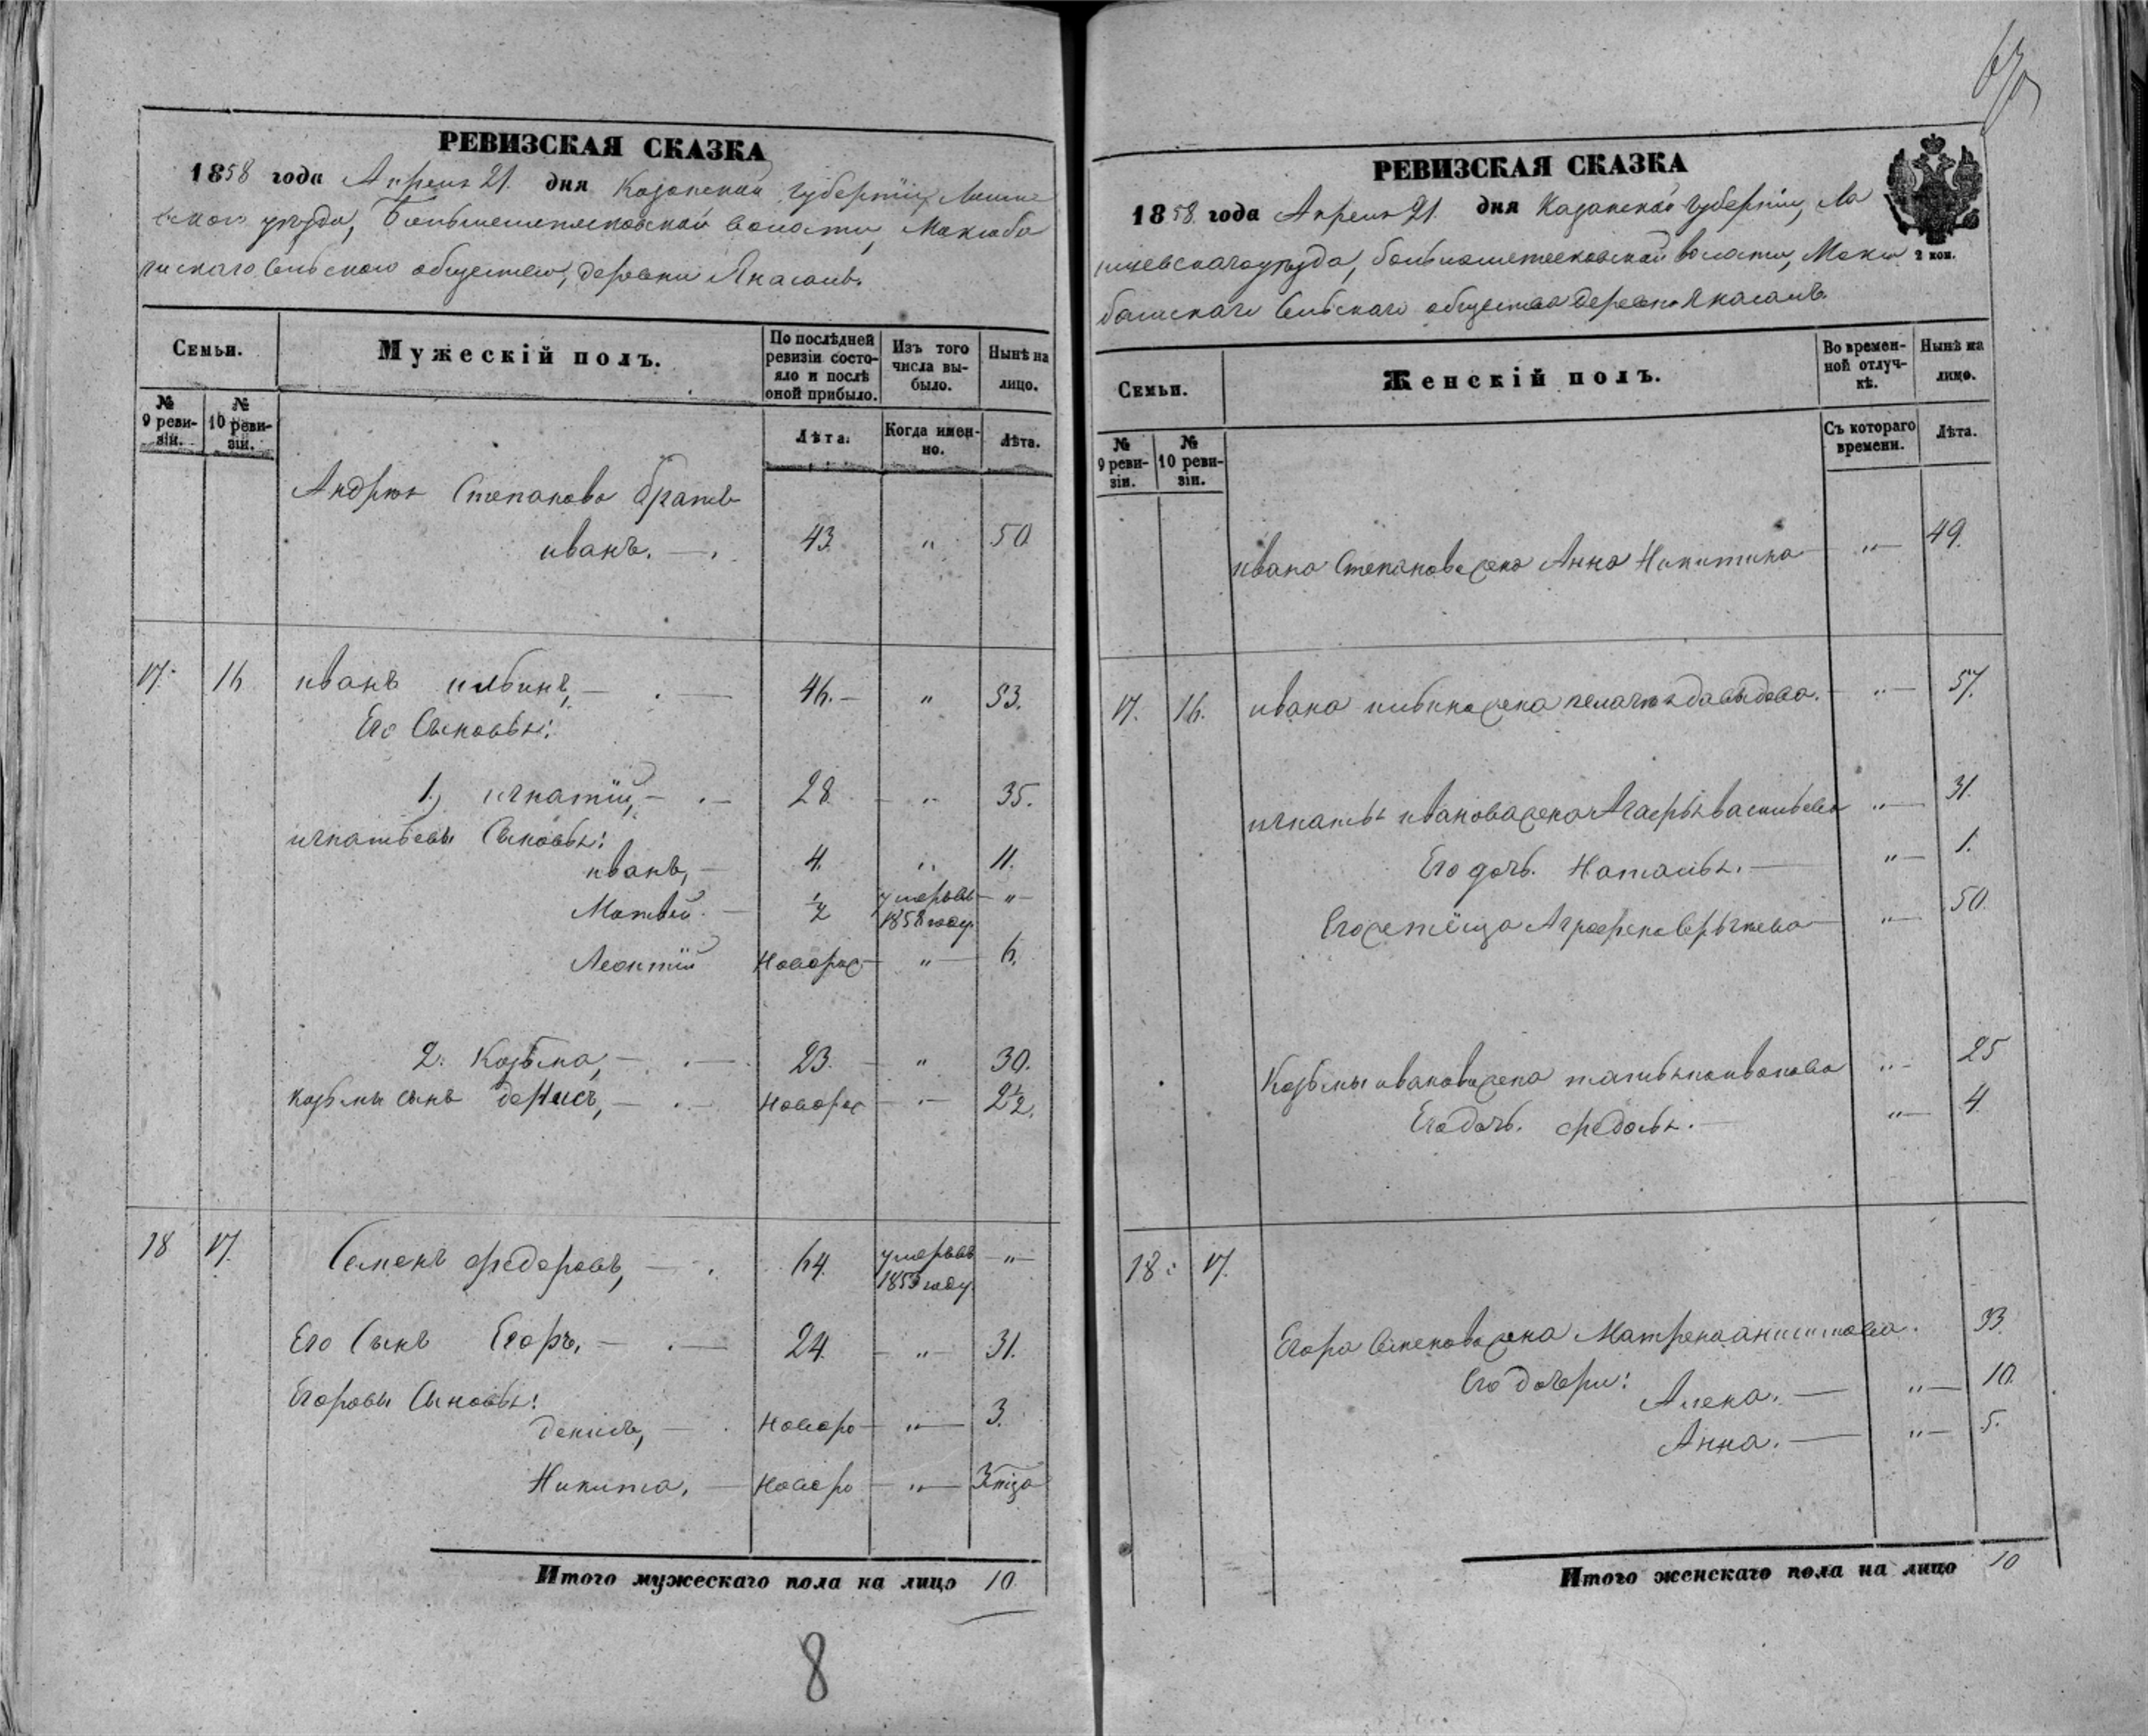 РЕВИЗСКАЯ СКАЗКА
1858 года Апреля 21. дня Казанской губернїи, Лаише
вскаго уѣзда, Большешемякинской волости,
Сельскаго общества, деревни Янасалъ.
Семьи.
Мужескій полъ.
По послѣдней ревизіи состояло и послѣ оной прибыло.
Изъ того числа выбыло.
Нынѣ на лицо.
№ 9 ревизіи.
№ 10 ревизіи.
Лѣта.
Когда именно.
Лѣта.
Андрея Степанова братъ
иванъ. — . 43. " 50
17. 16 иванъ ильинъ, — . — 46. — " 53.
Его Сыновья:
1.) игнатїй, — . — 28. — " 35.
игнатьевы Сыновья:
иванъ, — 4. " 11.
Матвѣй. — ½ умеръ въ 1858 году. — " —
Леонтїй Новорож — " — 6.
2. Козьма, — . — 23. — " 30.
козьмы сынъ денисъ, — . — Новорож — " — 2½.
18 17. Семенъ федоровъ, — . 64. умеръ въ 1853 году. — " —
Его Сынъ Егоръ. — . — 24. — " — 31.
Егоровы Сыновья:
данилъ, — . Новоро — " — 3.
Никита. — Новоро — " — 3 мца
Итого мужескаго пола на лицо 10.
8
РЕВИЗСКАЯ СКАЗКА
1858. года Апреля 21. дня Казанской губернїи, Ла
ишевскаго уѣзда, волости,
Сельскаго общества деревни Янасалъ.
2 коп.
Семьи.
Женскій полъ.
Во временной отлучкѣ.
Нынѣ на лицо.
№ 9 ревизіи.
№ 10 ревизіи.
Съ котораго времени.
Лѣта.
ивана Степанова жена Анна Никитина — " — 49.
17. 16. ивана ильина жена пелагея давыдова. — " — 57.
игнатья иванова жена Агафья васильева " — 31.
Его дочь. Наталья. — " — 1.
Аграфена — " — 50.
Козьмы иванова жена татьяна иванова " — 25
Его дочь. федосья. — " — 4.
18. 17.
Егора Семенова жена Матрена анисимова. 33.
Его дочери:
Алена. — " — 10.
Анна. — " — 5.
Итого женскаго пола на лицо 10